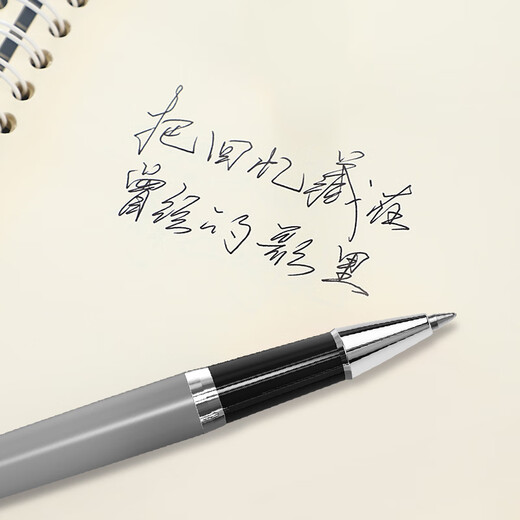 把回忆藏在
曾经的影里